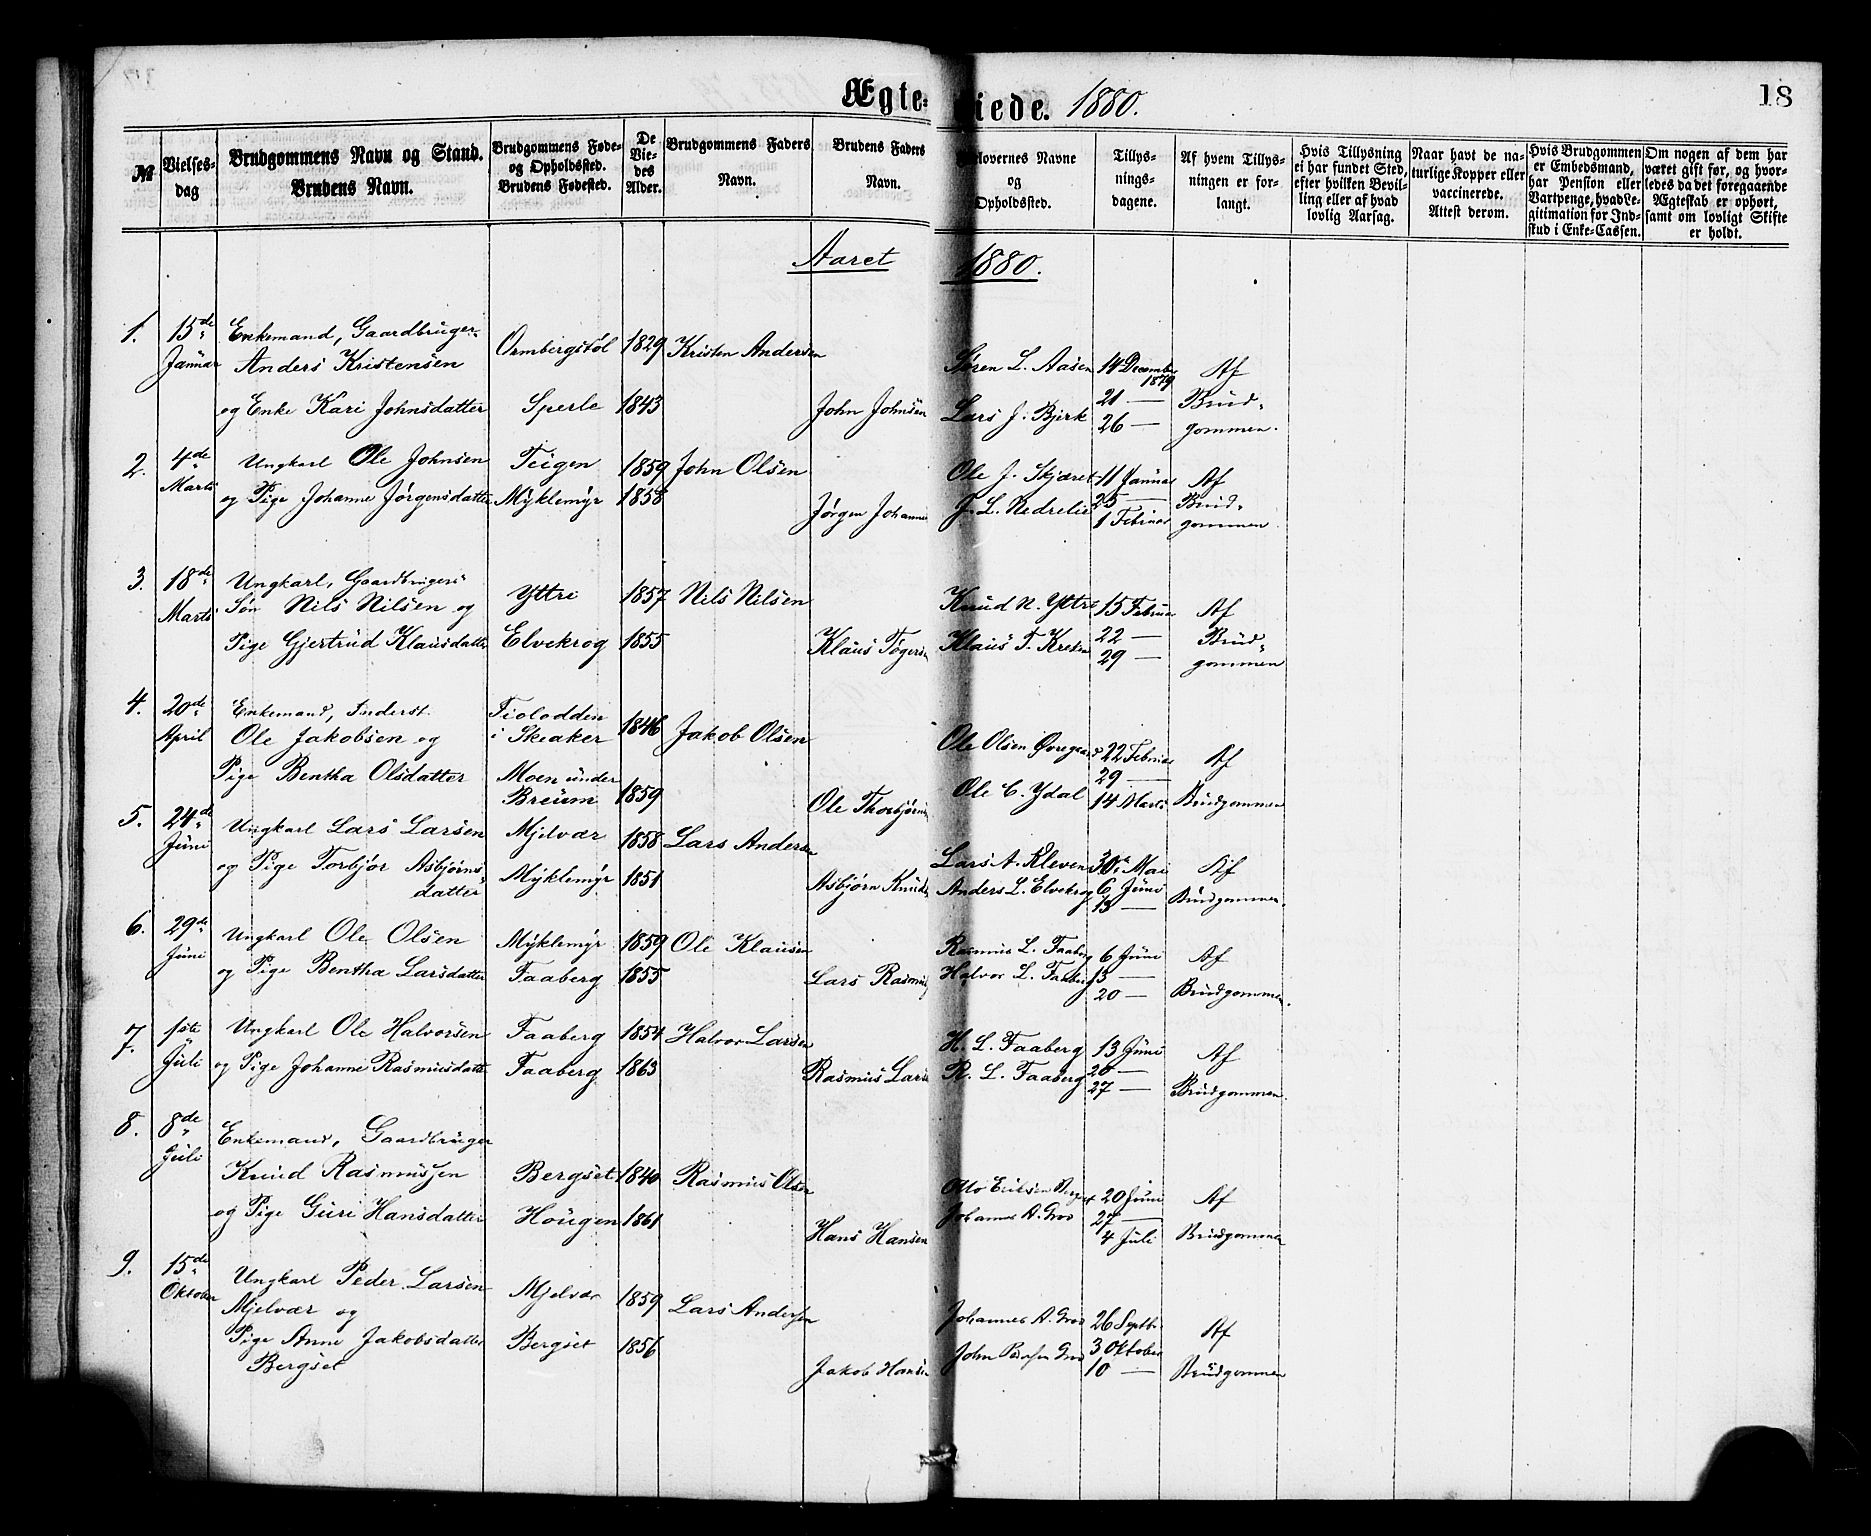 Ægte- viede. 1880.
18
№
Vielses-
dag
Brudgommens Navn og Stand.
Brudens Navn.
Brudgommens Føde-
og Opholdssted.
Brudens Fødested.
De
Vie-
des
Alder.
Brudgommens Faders
Navn.
Brudens Faders
Navn.
lovernes Navne
og
Opholdssted.
Tillys-
nings-
dagene.
Af hvem Tillys-
ningen er for-
langt.
Hvis Tillysning
ei har fundet Sted,
efter hvilken Bevil-
ling eller af hvad
lovlig Aarsag.
Naar havt de na-
turlige Kopper eller
vaccinerede.
Attest derom.
Hvis Brudgommen
er Embedsmand,
har Pension eller
Vartpenge, hvad Le-
gitimation for Ind-
skud i Enke-Cassen.
Om nogen af dem har
været gift før, og hvor-
ledes da det foregaaende
Ægteskab er ophørt,
samt om lovligt Skifte
er holdt.
Aaret 1880.
1. 15de Januar
Enkemand, Gaardbruger
Anders Kristensen
Ormbergstøl 1829 Kristen Andersen
Søren L. Aasen 14 December 1879 Af
og Enke Kari Johnsdatter Sperle 1843 John Johnsen
Lars J. Bjerk 21 — Brud-
26 — gommen.
2. 4de Marts
Ungkarl Ole Johnsen Teigen 1859 John Olsen
Ole J. Skjæret 11 Januar Af
og Pige Johanne Jørgensdatter Myklemyr 1858 Jørgen Johanne
J. L. Nedrelie 25 — Brud-
1 Februar gommen.
3. 18de Marts
Ungkarl, Gaardbrugers
Søn Nils Nilsen og Yttri 1857 Nils Nilsen
Knud N. Yttri 15 Februar Af
Pige Gjertrud Klausdatter Elvekrog 1855 Klaus Tøgersen
Klaus T. 22 — Brud-
29 — gommen
4. 20de April
Enkemand, Inderst.
Ole Jakobsen og
i Skeaker 1846 Jakob Olsen
Ole Olsen Øvregaard 22 Februar Af
Pige Bentha Olsdatter Moen under
Breum 1859 Ole Thorbjørns
Ole C. Ydal 29 —
14 Marts Brudgommen
5. 24de Juni
Ungkarl Lars Larsen Mjelvær 1858 Lars Andersen
Lars A. Kleven 30te Mai Af
og Pige Torbjør Asbjørns-
datter Myklemyr 1851 Asbjørn Knuds
Anders L. Elvekrog 6 Juni
13 — Brudgommen.
6. 29de Juni
Ungkarl Ole Olsen Myklemyr 1859 Ole Klausen
Rasmus L. Faaberg 6 Juni Af
og Pige Bentha Larsdatter Faaberg 1855 Lars Rasmus
Halvor L. Faaberg 13 —
20 — Brudgommen.
7. 1ste Juli
Ungkarl Ole Halvorsen Faaberg 1854 Halvor Larsen
H. L. Faaberg 13 Juni Af
og Pige Johanne Rasmusdatt Faaberg 1863 Rasmus Lars
R. L. Faaberg 20 —
27 — Brudgommen.
8. 8de Juli
Enkemand, Gaardbruger
Knud Rasmussen Bergset 1840 Rasmus Olsen
Otto Eriksen Bergset 20 Juni Af
og Pige Guri Hansdatter Hougen 1861 Hans Hansen
Johannes A. Grov 27 —
4 Juli Brudgommen
9. 15de Oktober
Ungkarl Peder Larsen
Mjelvær og Mjelvær 1859 Lars Andersen
Johannes A. Grov 26 Septbr Af
Pige Anne Jakobsdatter
Bergset Bergset 1856 Jakob Hansen
John Grov 3 Oktober
10 — Brudgommen